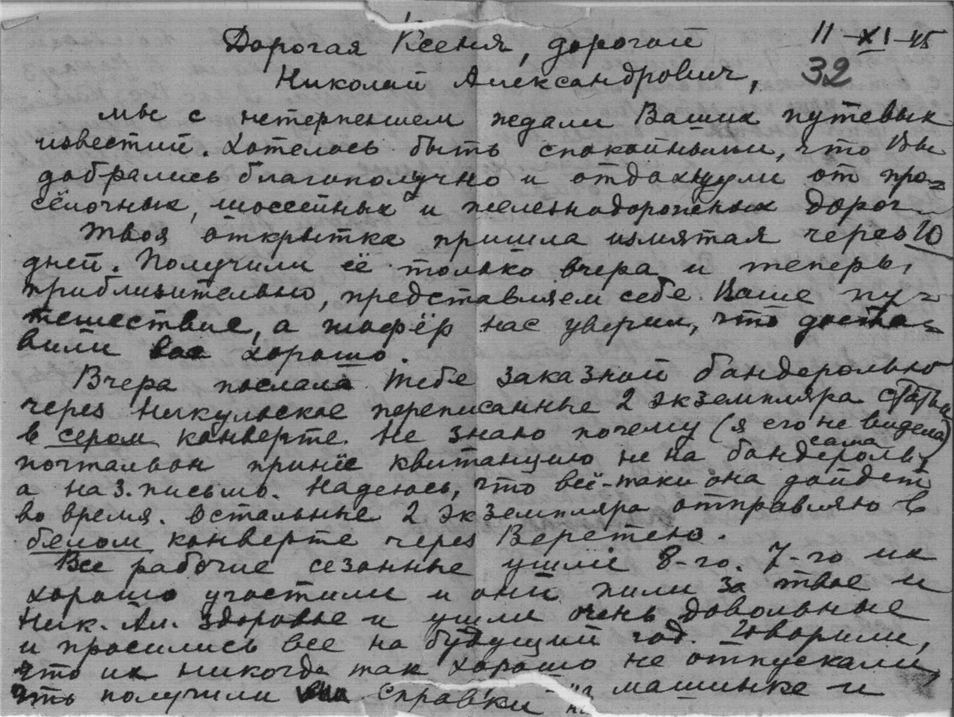 11-XI-45
Дорогая Ксеня, дорогой
32
Николай Александрович,
мы с нетерпением ждали Ваших путевых
известий. Хотелось быть спокойными, что Вы
добрались благополучно и отдохнули от про=
сёлочных, шоссейных и железнодорожных дорог.
Твоя открытка пришла измятая через 10
дней. Получили её только вчера и теперь,
приблизительно, представляем себе Ваше пу=
тешествие, а шофёр нас уверил, что доста=
вили вас хорошо.
Вчера послала тебе заказной бандеролью
через Никульское переписанные 2 экземпляра статьи
в сером конверте. Не знаю почему (я его не видела
сама)
почтальон принёс квитанцию не на бандероль,
а на з. письмо. Надеюсь, что всё-таки она дойдет
во время. Остальные 2 экземпляра отправляю в
белом конверте через Веретею.
Все рабочие сезонные ушли 8-го. 7-го их
хорошо угостили и они пили за твое и
Ник. Ал. здоровье и ушли очень довольные
и просились все на будущий год. Говорили,
что их никогда так хорошо не отпускали,
что получили справки на машинке и